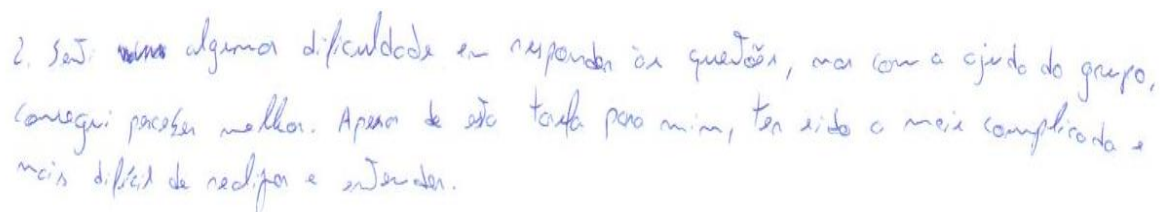 2. Senti alguma dificuldade em responder às questões, mas com a ajuda do grupo,
consegui perceber melhor. Apesar de esta tarefa para mim, ter sido a mais complicada e
mais difícil de realizar e entender.